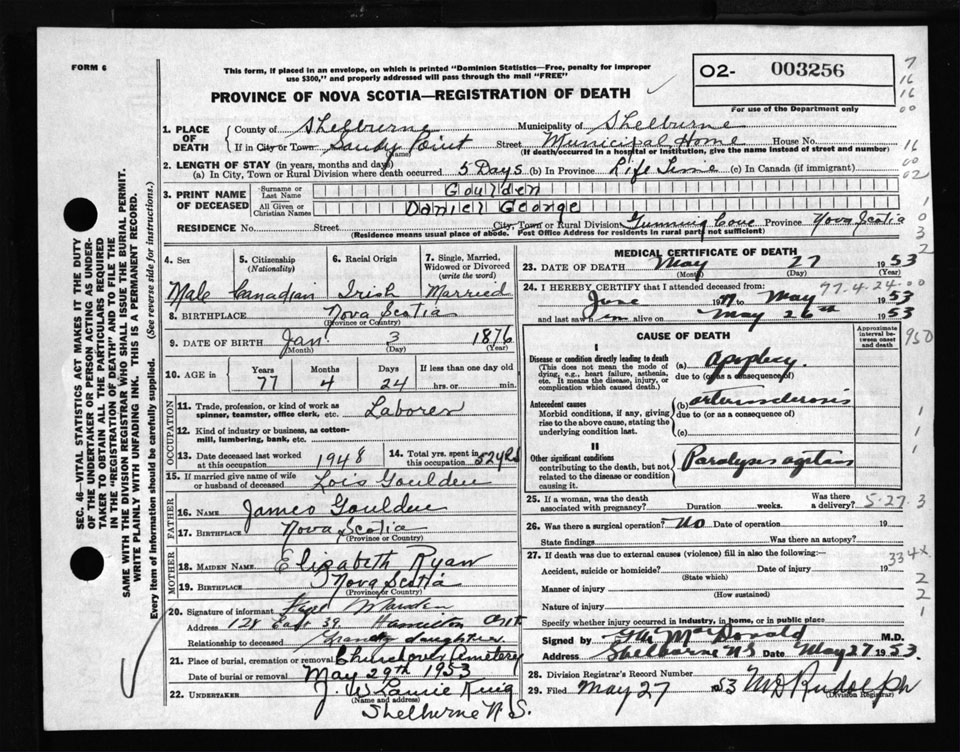 FORM 6
This form, if placed in an envelope, on which is printed "Dominion Statistics—Free, penalty for improper
use $300," and properly addressed will pass through the mail "FREE"
PROVINCE OF NOVA SCOTIA—REGISTRATION OF DEATH
02- 003256
For use of the Department only
1. PLACE OF DEATH
County of Shelburne Municipality of Shelburne
If in City or Town Sandy Point (Name) Street Municipal Home House No.
(If death occurred in a hospital or institution, give the name instead of street and number)
2. LENGTH OF STAY (in years, months and days)
(a) In City, Town or Rural Division where death occurred 5 Days (b) In Province Life Time (c) In Canada (if immigrant)
3. PRINT NAME OF DECEASED
Surname or Last Name Goulden
All Given or Christian Names Daniel George
RESIDENCE No. Street City, Town or Rural Division Gunning Cove Province Nova Scotia
(Residence means usual place of abode. Post Office Address for residents in rural part not sufficient)
4. Sex Male
5. Citizenship (Nationality) Canadian
6. Racial Origin Irish
7. Single, Married, Widowed or Divorced (write the word) Married
8. BIRTHPLACE Nova Scotia
(Province or Country)
9. DATE OF BIRTH Jan. 3 1876
(Month) (Day) (Year)
10. AGE in Years 77 Months 4 Days 24 If less than one day old hrs. or min.
OCCUPATION
11. Trade, profession, or kind of work as spinner, teamster, office clerk, etc. Laborer
12. Kind of industry or business, as cotton-mill, lumbering, bank, etc.
13. Date deceased last worked at this occupation 1948
14. Total yrs. spent in this occupation 52 yrs
15. If married give name of wife or husband of deceased Lois Goulden
FATHER
16. Name James Goulden
17. Birthplace Nova Scotia
(Province or Country)
MOTHER
18. MAIDEN NAME Elizabeth Ryan
19. BIRTHPLACE Nova Scotia
(Province or Country)
20. Signature of informant
Address 128 East 39. Hamilton Ont
Relationship to deceased Grand daughter.
21. Place of burial, cremation or removal Churchover Cemetery
Date of burial or removal May 29th 1953
22. UNDERTAKER J. W Laurie King
(Name and address)
Shelburne N S.
MEDICAL CERTIFICATE OF DEATH
23. DATE OF DEATH May 27 1953
(Month) (Day) (Year)
24. I HEREBY CERTIFY that I attended deceased from:
77-4-24-00
June 19 to May 1953
and last saw him alive on May 26th 1953
CAUSE OF DEATH
Approximate interval between onset and death
I
Disease or condition directly leading to death
(This does not mean the mode of dying, e.g., heart failure, asthenia, etc. It means the disease, injury, or complication which caused death.)
(a) Apoplexy
due to (or as a consequence of)
Antecedent causes
Morbid conditions, if any, giving rise to the above cause, stating the underlying condition last.
(b) arteriosclerosis
due to (or as a consequence of)
(c)
II
Other significant conditions
contributing to the death, but not related to the disease or condition causing it.
Paralysis agitans
25. If a woman, was the death associated with pregnancy? Duration weeks. Was there a delivery?
5-27-3
26. Was there a surgical operation? No Date of operation 19
State findings Was there an autopsy?
27. If death was due to external causes (violence) fill in also the following:
Accident, suicide or homicide? Date of injury 19
(State which)
334x
Manner of injury
(How sustained)
Nature of injury
Specify whether injury occurred in industry, in home, or in public place
Signed by MacDonald M.D.
Address Shelburne N S Date May 27 1953.
28. Division Registrar's Record Number
29. Filed May 27 1953 M D Rudolph
(Division Registrar)
7
16
16
00
16
00
02
1
0
3
2
950
1
1
1
2
2
1
SEC. 46—VITAL STATISTICS ACT MAKES IT THE DUTY
OF THE UNDERTAKER OR PERSON ACTING AS UNDER-
TAKER TO OBTAIN ALL THE PARTICULARS REQUIRED
IN THE "REGISTRATION OF DEATH" AND TO FILE THE
SAME WITH THE DIVISION REGISTRAR WHO SHALL ISSUE THE BURIAL PERMIT.
WRITE PLAINLY WITH UNFADING INK. THIS IS A PERMANENT RECORD.
Every item of information should be carefully supplied. (See reverse side for instructions.)